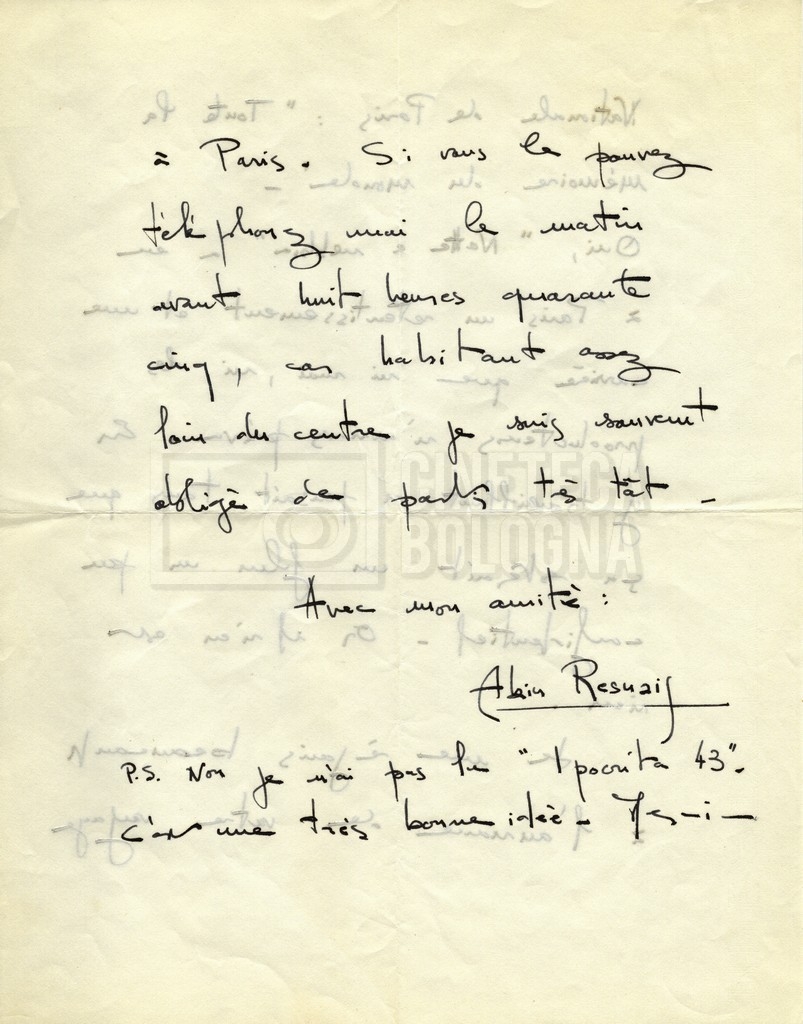 à Paris. Si vous le pouvez
téléphonez moi le matin
avant huit heures quarante
cinq, car habitant assez
loin du centre je suis souvent
obligé de partir très tôt -
CINETECA
BOLOGNA
Avec mon amitié :
Alain Resnais
P.S. Non je n'ai pas lu "Ipocrita 43".
c'est une très bonne idée -